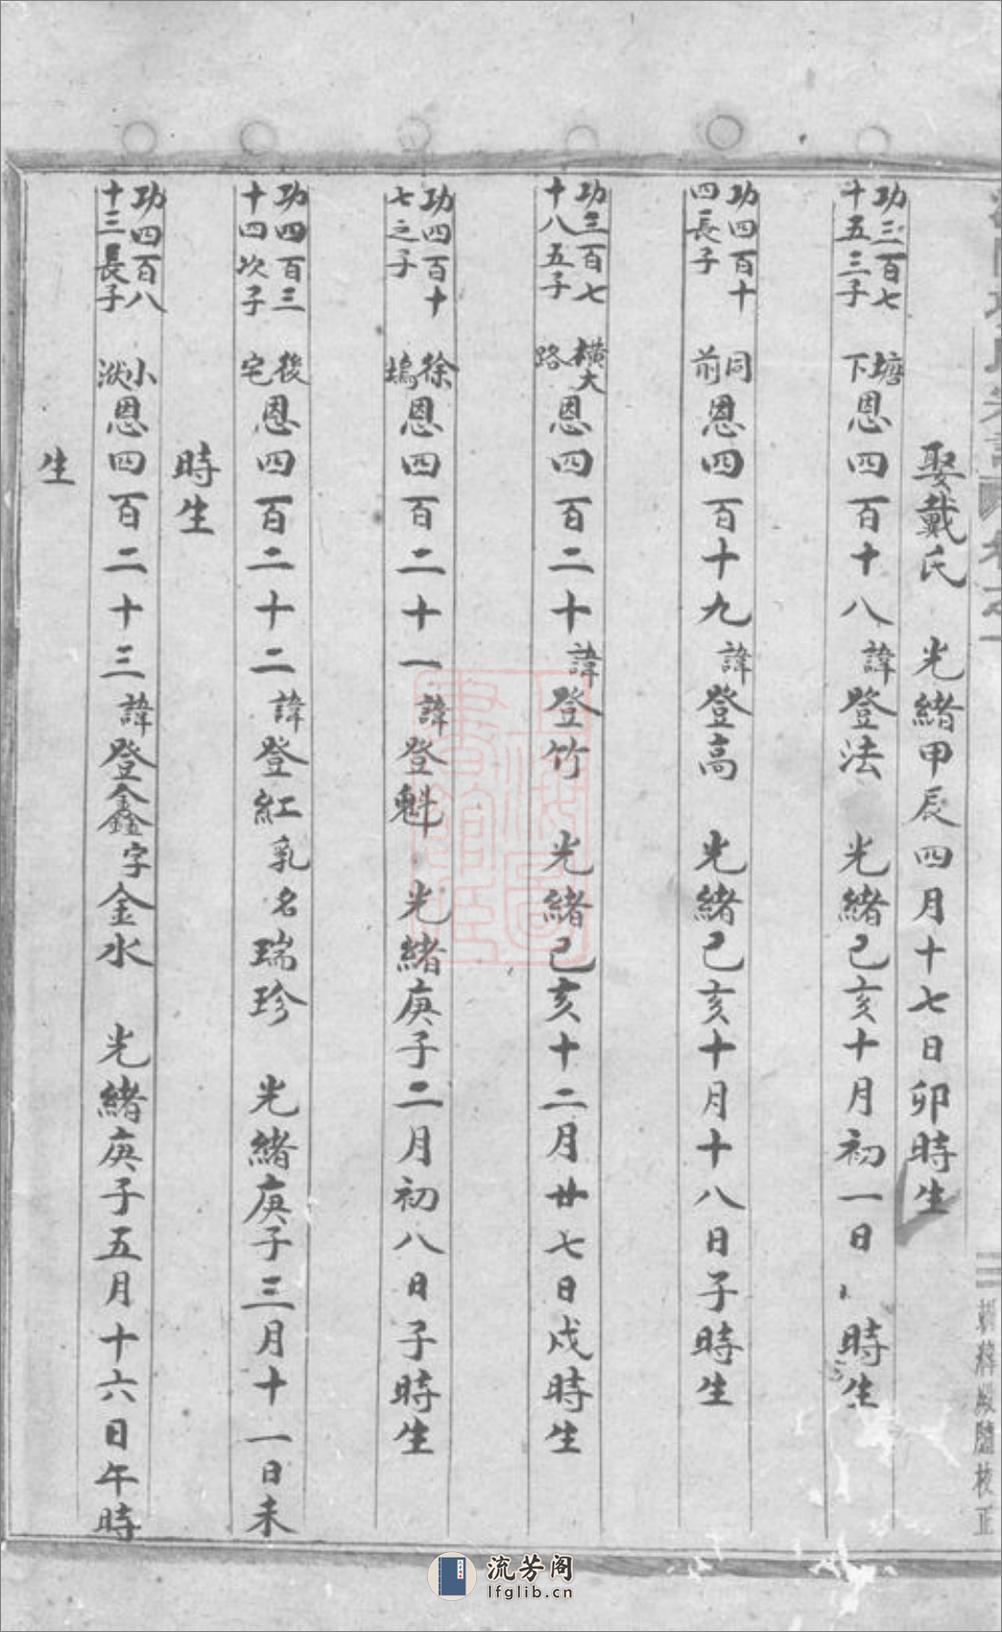 娶戴氏 光緒甲辰四月十七日卯時生
功三百七十五三子 塘下 恩四百十八 諱登法 光緒己亥十月初一日 時生
功四百十四長子 同前 恩四百十九 諱登高 光緒己亥十月十八日子時生
功三百七十八五子 橫大路 恩四百二十 諱登竹 光緒己亥十二月廿七日戌時生
功四百十七之子 徐塢 恩四百二十一 諱登魁 光緒庚子二月初八日子時生
功四百三十四次子 後宅 恩四百二十二 諱登紅乳名瑞珍 光緒庚子三月十一日未
時生
功四百八十三長子 小洑 恩四百二十三 諱登鑫字金水 光緒庚子五月十六日午時
生
流芳阁
lfglib.cn